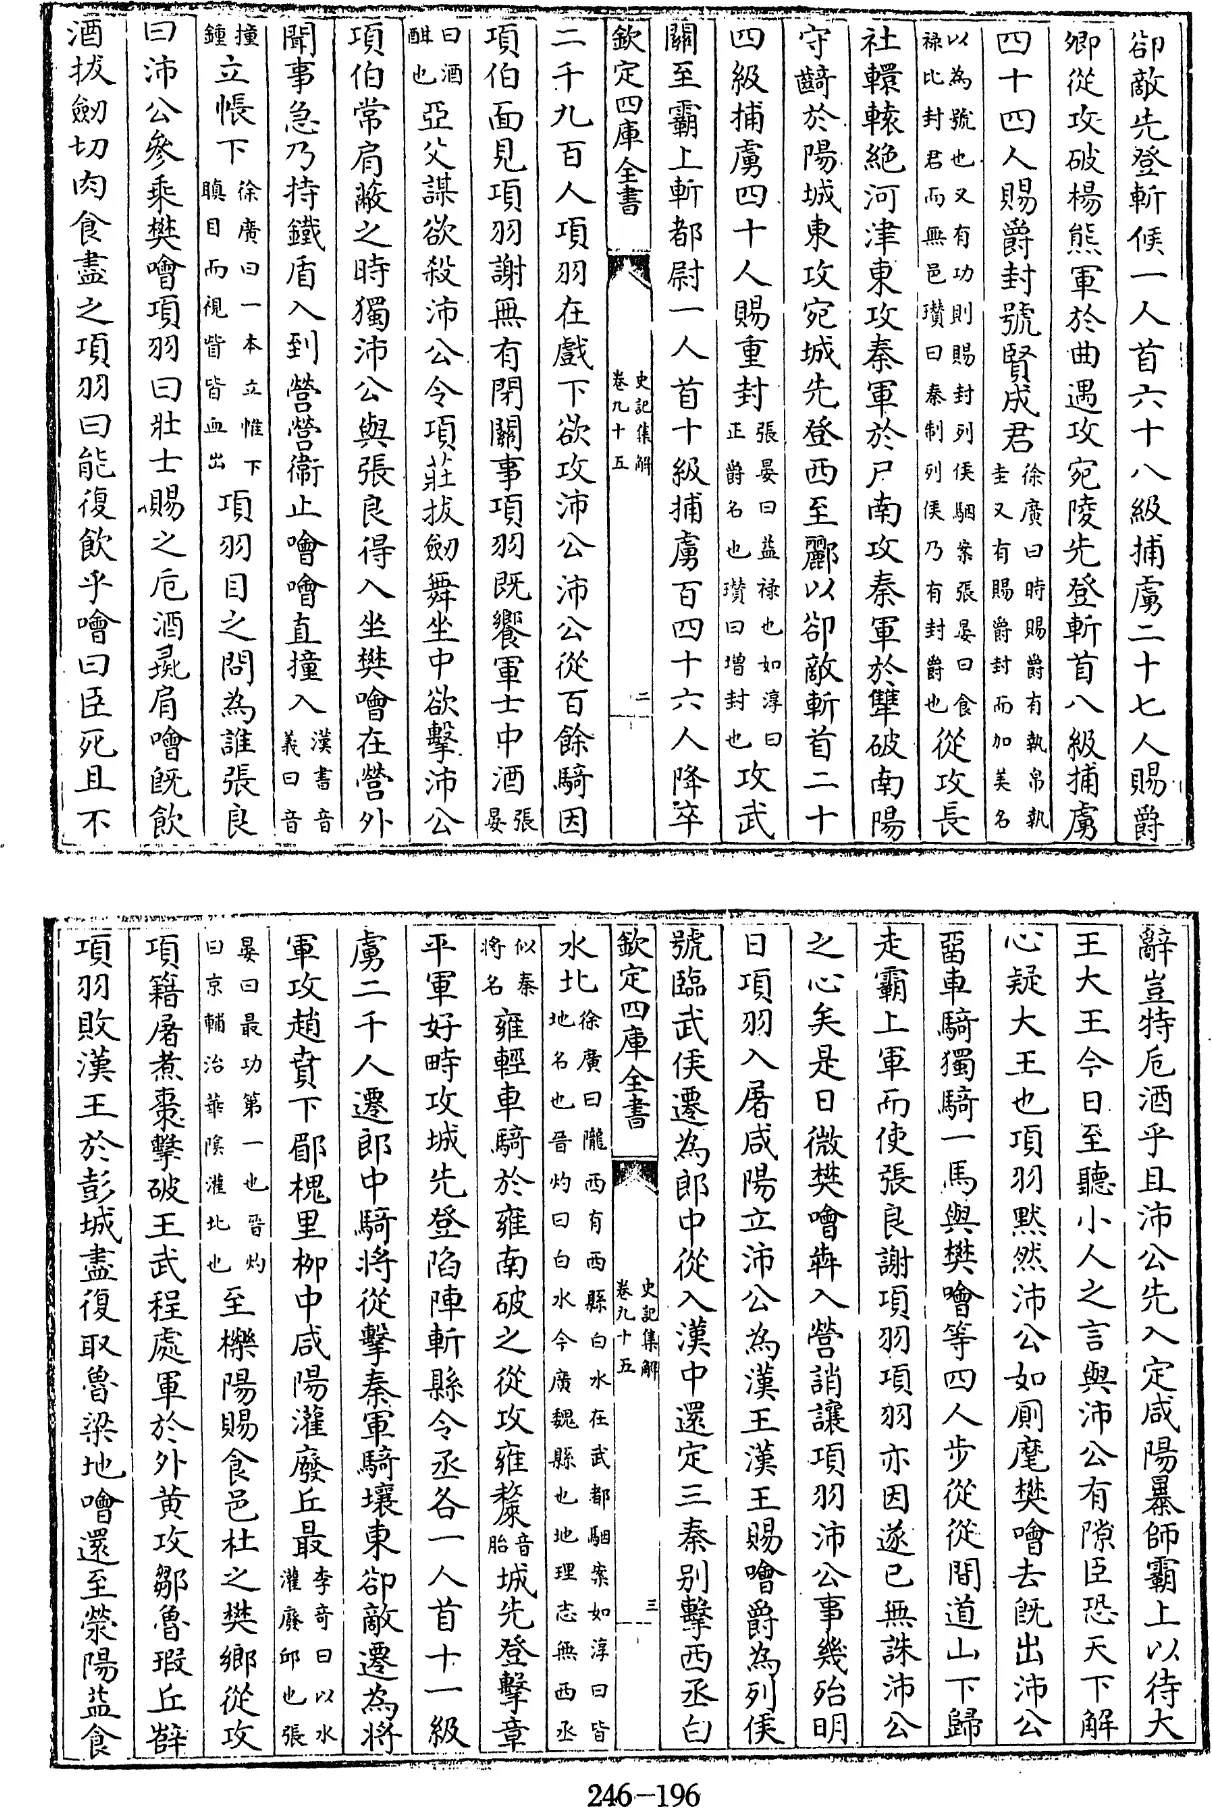 卻敵先登斬候一人首六十八級捕虜二十七人賜爵
卿從攻破楊熊軍於曲遇攻宛陵先登斬首八級捕虜
四十四人賜爵封號賢成君徐廣曰時賜爵有執帛執圭又有賜爵封而加美名
以為號也又有功則賜封列侯駰案張晏曰食祿比封君而無邑瓚曰秦制列侯乃有封爵也從攻長
社轘轅絕河津東攻秦軍於尸南攻秦軍於犨破南陽
守齮於陽城東攻宛城先登西至酈以卻敵斬首二十
四級捕虜四十人賜重封張晏曰益祿也如淳曰正爵名也瓚曰增封也攻武
關至霸上斬都尉一人首十級捕虜百四十六人降卒
欽定四庫全書 史記集解卷九十五 二
二千九百人項羽在戲下欲攻沛公沛公從百餘騎因
項伯面見項羽謝無有閉關事項羽既饗軍士中酒張晏
曰酒酣也亞父謀欲殺沛公令項莊拔劒舞坐中欲擊沛公
項伯常肩蔽之時獨沛公與張良得入坐樊噲在營外
聞事急乃持鐵盾入到營營衞止噲噲直撞入漢書音義曰音
撞鍾立帳下徐廣曰一本立惟下瞋目而視眥皆血出項羽目之問為誰張良
曰沛公參乘樊噲項羽曰壯士賜之卮酒彘肩噲既飲
酒拔劒切肉食盡之項羽曰能復飲乎噲曰臣死且不
辭豈特卮酒乎且沛公先入定咸陽暴師霸上以待大
王大王今日至聽小人之言與沛公有隙臣恐天下解
心疑大王也項羽默然沛公如廁麾樊噲去既出沛公
畱車騎獨騎一馬與樊噲等四人步從從間道山下歸
走霸上軍而使張良謝項羽項羽亦因遂已無誅沛公
之心矣是日微樊噲犇入營誚讓項羽沛公事幾殆明
日項羽入屠咸陽立沛公為漢王漢王賜噲爵為列侯
號臨武侯遷為郎中從入漢中還定三秦别擊西丞白
欽定四庫全書 史記集解卷九十五 三
水北徐廣曰隴西有西縣白水在武都駰案如淳曰皆地名也晉灼曰白水今廣魏縣也地理志無西丞
似秦將名雍輕車騎於雍南破之從攻雍斄音胎城先登擊章
平軍好畤攻城先登陷陣斬縣令丞各一人首十一級
虜二千人遷郎中騎將從擊秦軍騎壤東卻敵遷為將
軍攻趙賁下郿槐里柳中咸陽灌廢丘最李奇曰以水灌廢邱也張
晏曰最功第一也晉灼曰京輔治華陰灌北也至櫟陽賜食邑杜之樊鄉從攻
項籍屠煮棗擊破王武程處軍於外黄攻鄒魯瑕丘薛
項羽敗漢王於彭城盡復取魯梁地噲還至滎陽益食
246-196